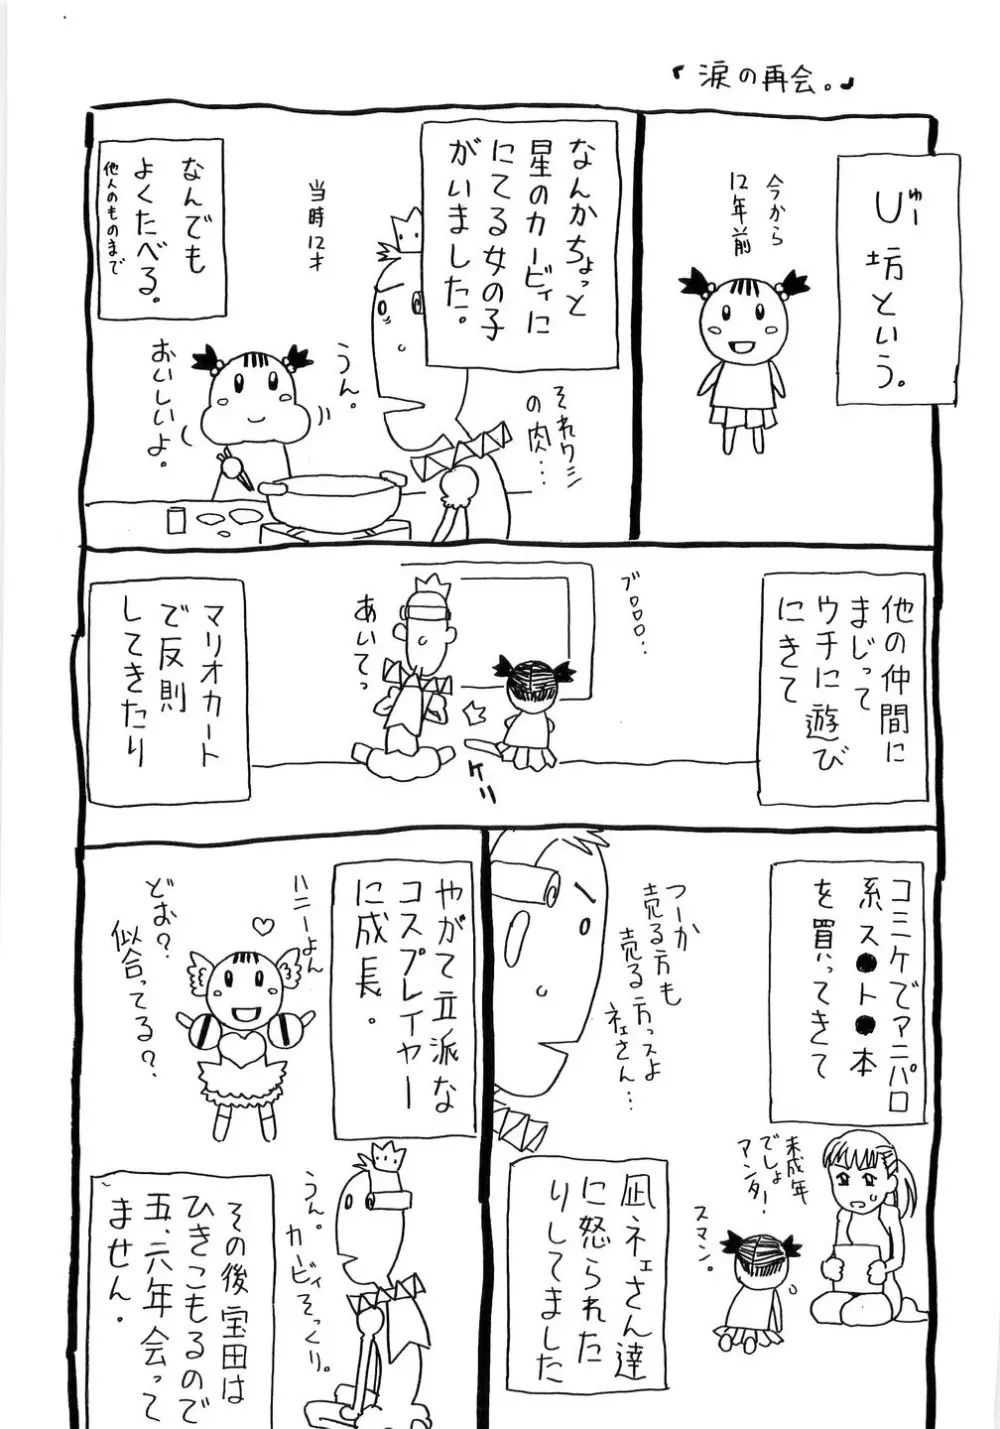 『涙の再会。』
今から
12年前
U坊という。
ゅー
なんかちょっと
星のカービィに
にてる女の子
がいました。
それワシ
の肉…
うん。
当時12才
おいしいよ。
なんでも
よくたべる。
他人のものまで
他の仲間に
まじって
ウチに遊び
にきて
ブロロロ…
あいてっ
ケリ
マリオカート
で反則
してきたり
コミケでアニパロ
系ス●ト●本
を買ってきて
未成年
でしょ
アンター!
スマン。
つーか
売る方も
売る方っスよ
ネェさん…
凪ネェさん達
に怒られた
りしてました
やがて立派な
コスプレイヤー
に成長。
ハニーよん
どお?
似合ってる?
うん。
カービィそっくり。
その後宝田は
ひきこもるので
五、六年会って
ません。